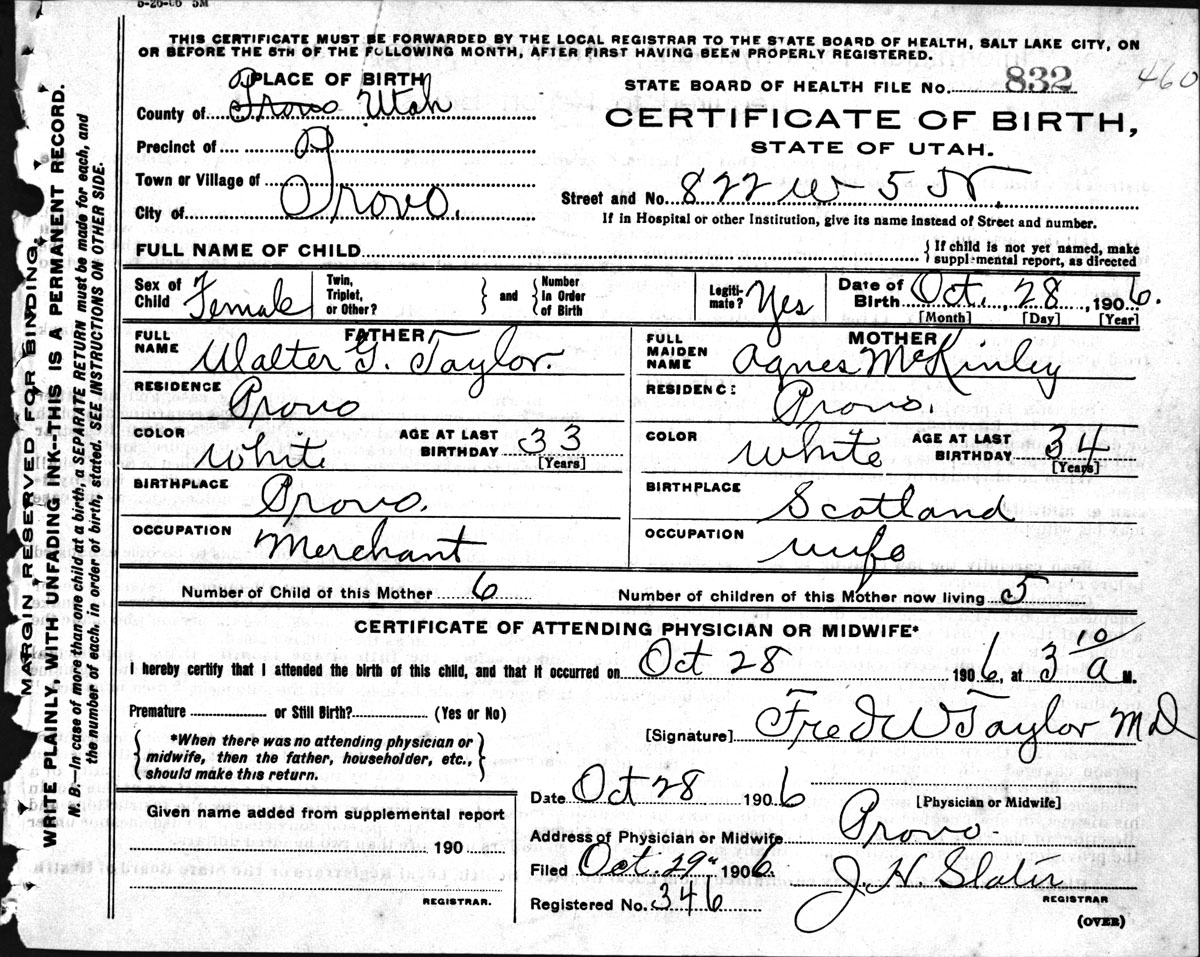 5-26-06 5M
THIS CERTIFICATE MUST BE FORWARDED BY THE LOCAL REGISTRAR TO THE STATE BOARD OF HEALTH, SALT LAKE CITY, ON
OR BEFORE THE 5TH OF THE FOLLOWING MONTH, AFTER FIRST HAVING BEEN PROPERLY REGISTERED.
PLACE OF BIRTH
County of Provo Utah
Precinct of
Town or Village of
City of Provo.
STATE BOARD OF HEALTH FILE No. 832 460
CERTIFICATE OF BIRTH,
STATE OF UTAH.
Street and No. 822 W 5 N.
If in Hospital or other Institution, give its name instead of Street and number.
FULL NAME OF CHILD
If child is not yet named, make
supplemental report, as directed
Sex of Child Female
Twin, Triplet, or Other?
and
Number In Order of Birth
Legiti-mate? Yes
Date of Birth Oct. 28, 1906.
[Month] [Day] [Year]
FATHER
FULL NAME Walter G. Taylor.
RESIDENCE Provo
COLOR White
AGE AT LAST BIRTHDAY 33
[Years]
BIRTHPLACE Provo.
OCCUPATION Merchant
MOTHER
FULL MAIDEN NAME Agnes McKinley
RESIDENCE Provo.
COLOR White
AGE AT LAST BIRTHDAY 34
[Years]
BIRTHPLACE Scotland
OCCUPATION wife
Number of Child of this Mother 6
Number of children of this Mother now living 5
CERTIFICATE OF ATTENDING PHYSICIAN OR MIDWIFE*
I hereby certify that I attended the birth of this child, and that it occurred on Oct 28 1906, at 3 10/a M.
Premature or Still Birth? (Yes or No)
*When there was no attending physician or
midwife, then the father, householder, etc.,
should make this return.
[Signature] Fred W Taylor MD
Date Oct 28 1906
[Physician or Midwife]
Given name added from supplemental report
190
REGISTRAR.
Address of Physician or Midwife Provo.
Filed Oct. 29" 1906.
J. H. Slater
REGISTRAR
Registered No. 346
(OVER)
MARGIN RESERVED FOR BINDING.
WRITE PLAINLY WITH UNFADING INK--THIS IS A PERMANENT RECORD.
N. B.—In case of more than one child at a birth, a SEPARATE RETURN must be made for each, and
the number of each, in order of birth, stated. SEE INSTRUCTIONS ON OTHER SIDE.